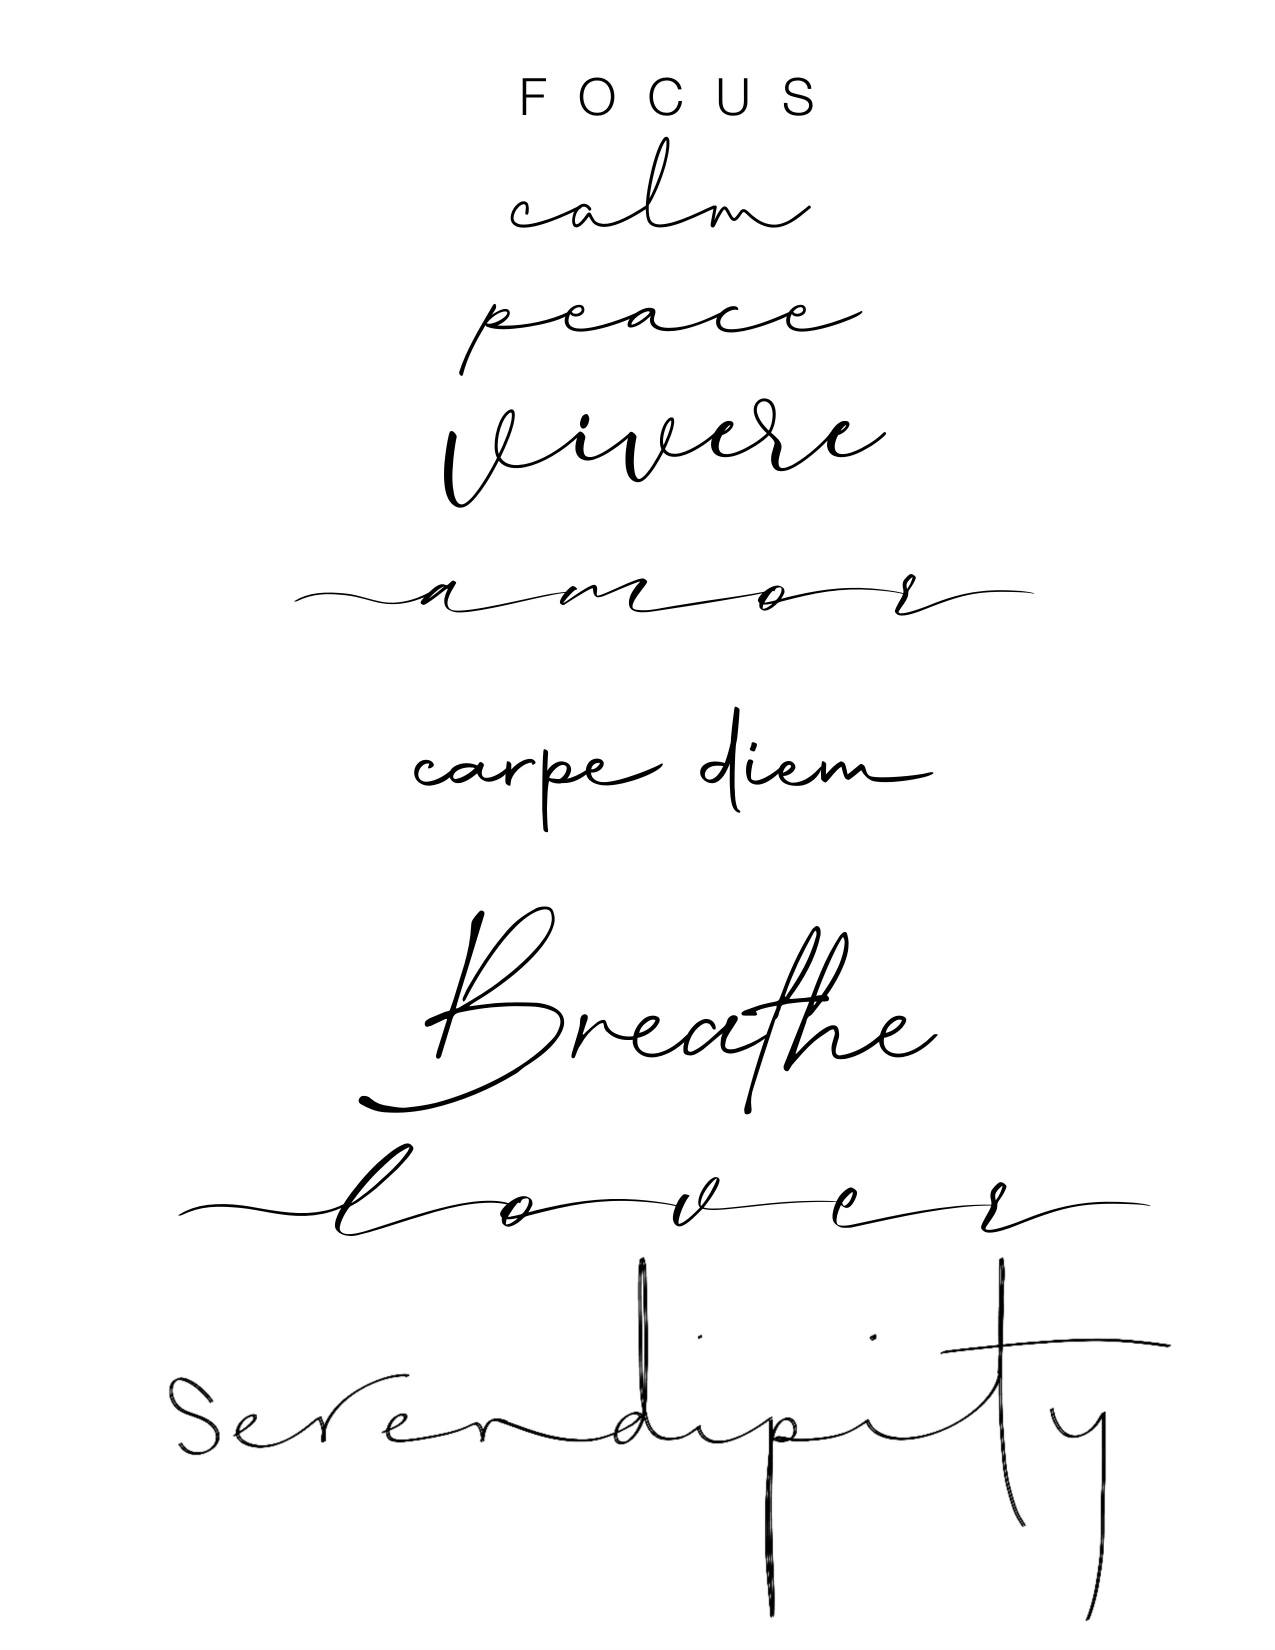 FOCUS
calm
peace
Vivere
amor
carpe diem
Breathe
lover
serendipity